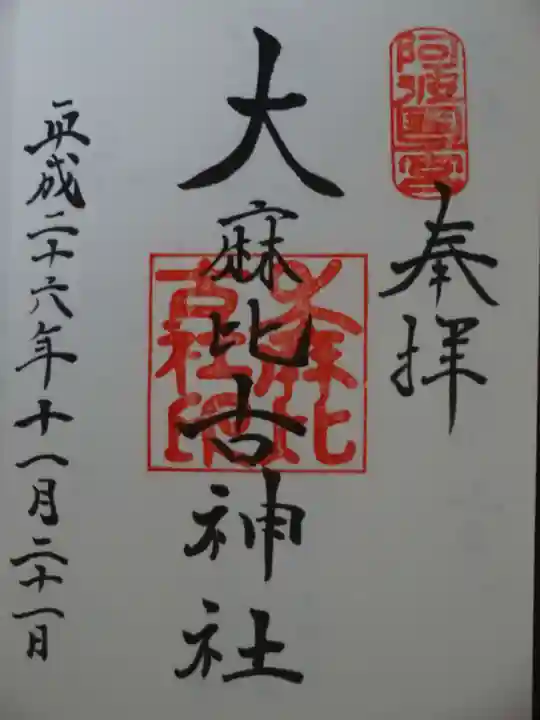 阿波國一宮
奉拝
大麻比古神社
大麻比古社印
平成二十六年十一月二十一日